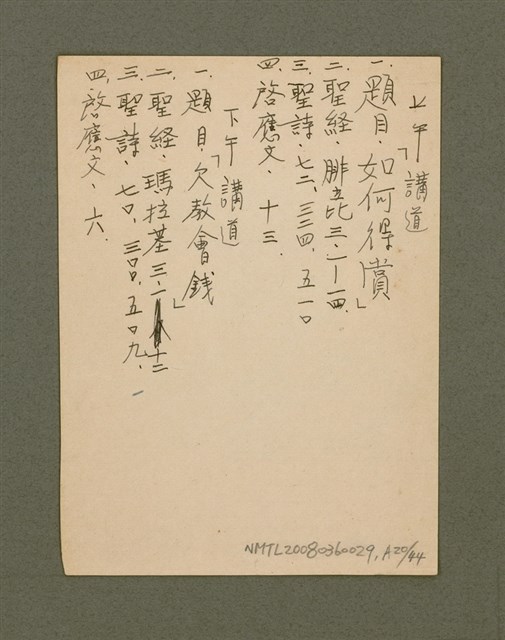 上午講道
一.題目.「如何得賞」
二.聖経、腓立比三、一—一四.
三.聖詩、七二、三三四、五一〇
四.啓應文、十三.
下午講道
一.題目.「欠教會錢」
二.聖経、瑪拉基三、一—十二
三.聖詩、七〇、三〇〇、五〇九、
四.啓應文、六.
NMTL20080360029, A20/44